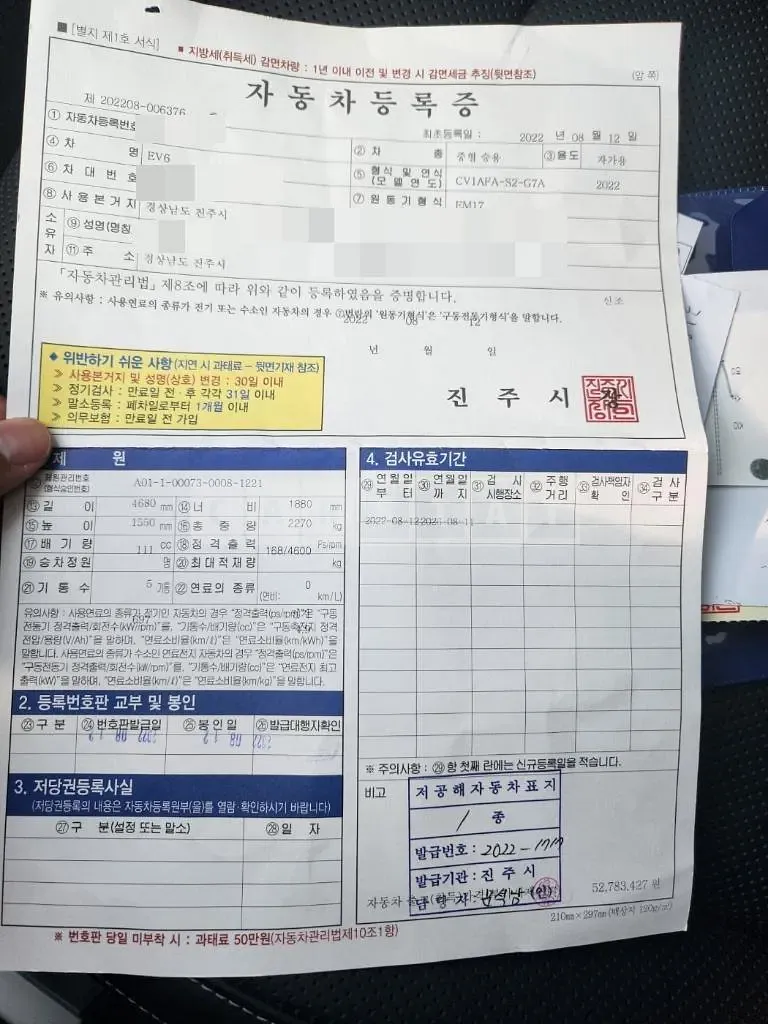 ■ [별지 제1호 서식]
■ 지방세(취득세) 감면차량 : 1년 이내 이전 및 변경 시 감면세금 추징(뒷면참조)
(앞 쪽)
자동차등록증
제 202208-006376
최초등록일 : 2022 년 08 월 12 일
① 자동차등록번호 ② 차 종 중형 승용 ③ 용도 자가용
④ 차 명 EV6 ⑤ 형식 및 연식 (모델연도) CV1AFA-S2-G7A 2022
⑥ 차대번호 ⑦ 원동기형식 EM17
⑧ 사용본거지 경상남도 진주시
소유자 ⑨ 성명(명칭
⑪ 주 소 경상남도 진주시
「자동차관리법」 제8조에 따라 위와 같이 등록하였음을 증명합니다.
신조
※ 유의사항 : 사용연료의 종류가 전기 또는 수소인 자동차의 경우 ⑦번란의 '원동기형식'은 '구동전동기형식'을 말합니다.
2022 08 12
년 월 일
진 주 시 장
◆ 위반하기 쉬운 사항 (지연 시 과태료 – 뒷면기재 참조)
≫ 사용본거지 및 성명(상호) 변경 : 30일 이내
≫ 정기검사 : 만료일 전·후 각각 31일 이내
≫ 말소등록 : 폐차일로부터 1개월 이내
≫ 의무보험 : 만료일 전 가입
제 원
제원관리번호 (형식승인번호) A01-1-00073-0008-1221
⑬ 길 이 4680 mm ⑭ 너 비 1880 mm
⑮ 높 이 1550 mm ⑯ 총 중 량 2270 kg
⑰ 배 기 량 111 cc ⑱ 정격출력 168/4600 Ps/rpm
⑲ 승차정원 명 ⑳ 최대적재량 kg
㉑ 기 통 수 5 기통 ㉒ 연료의 종류 0 (연비: km/L)
유의사항 : 사용연료의 종류가 전기인 자동차의 경우 "정격출력(ps/rpm)"은 "구동
전동기 정격출력/회전수(kW/rpm)"를, "기통수/배기량(cc)"은 "구동축전지 정격
전압/용량(V/Ah)"을 말하며, "연료소비율(km/ℓ)"은 "연료소비율(km/kWh)"을
말합니다. 사용연료의 종류가 수소인 연료전지 자동차의 경우 "정격출력(ps/rpm)"은
"구동전동기 정격출력/회전수(kW/rpm)"를, "기통수/배기량(cc)"은 "연료전지 최고
출력(kW)"을 말하며, "연료소비율(km/ℓ)"은 "연료소비율(km/kg)"을 말합니다.
697
2. 등록번호판 교부 및 봉인
㉓ 구 분 ㉔ 번호판발급일 ㉕ 봉 인 일 ㉖ 발급대행자확인
3. 저당권등록사실
(저당권등록의 내용은 자동차등록원부(을)를 열람·확인하시기 바랍니다)
㉗ 구 분(설정 또는 말소) ㉘ 일 자
4. 검사유효기간
㉙ 연월일부터 ㉚ 연월일까지 ㉛ 검 사 시행장소 ㉜ 주행거리 ㉝ 검사책임자확인 ㉞ 검사구분
2022-08-12 2026-08-11
※ 주의사항 : ㉙ 항 첫째 란에는 신규등록일을 적습니다.
비고
저공해자동차표지
1 종
발급번호 : 2022 –
발급기관 : 진 주 시
(인)
52,783,427 원
210㎜×297㎜(배상지 120g/㎡)
※ 번호판 당일 미부착 시 : 과태료 50만원(자동차관리법제10조1항)